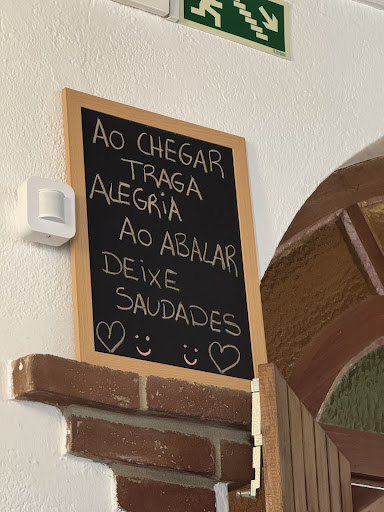 AO CHEGAR
TRAGA
ALEGRIA
AO ABALAR
DEIXE
SAUDADES